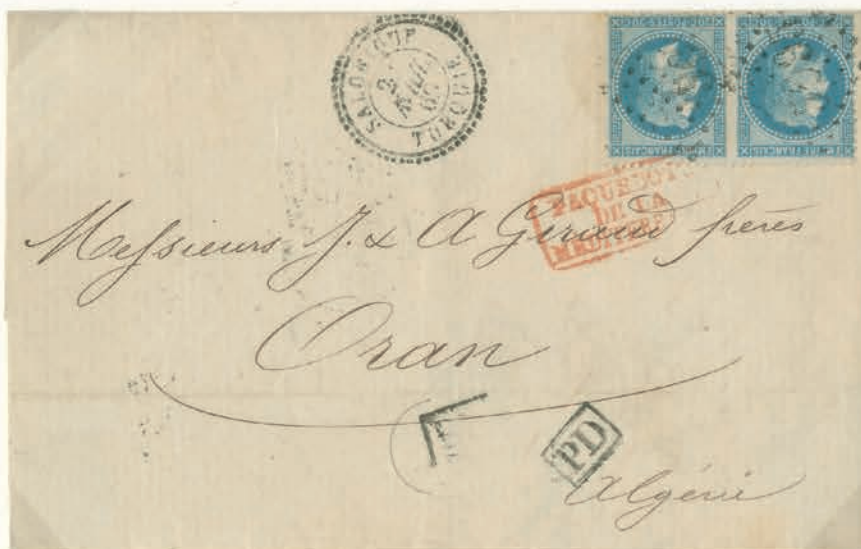 SALONIQUE TURQUIE
PAQUEBOTS
DE LA
MÉDITERR
Messieurs J. & A Giraud frères
Oran
PD
Algérie